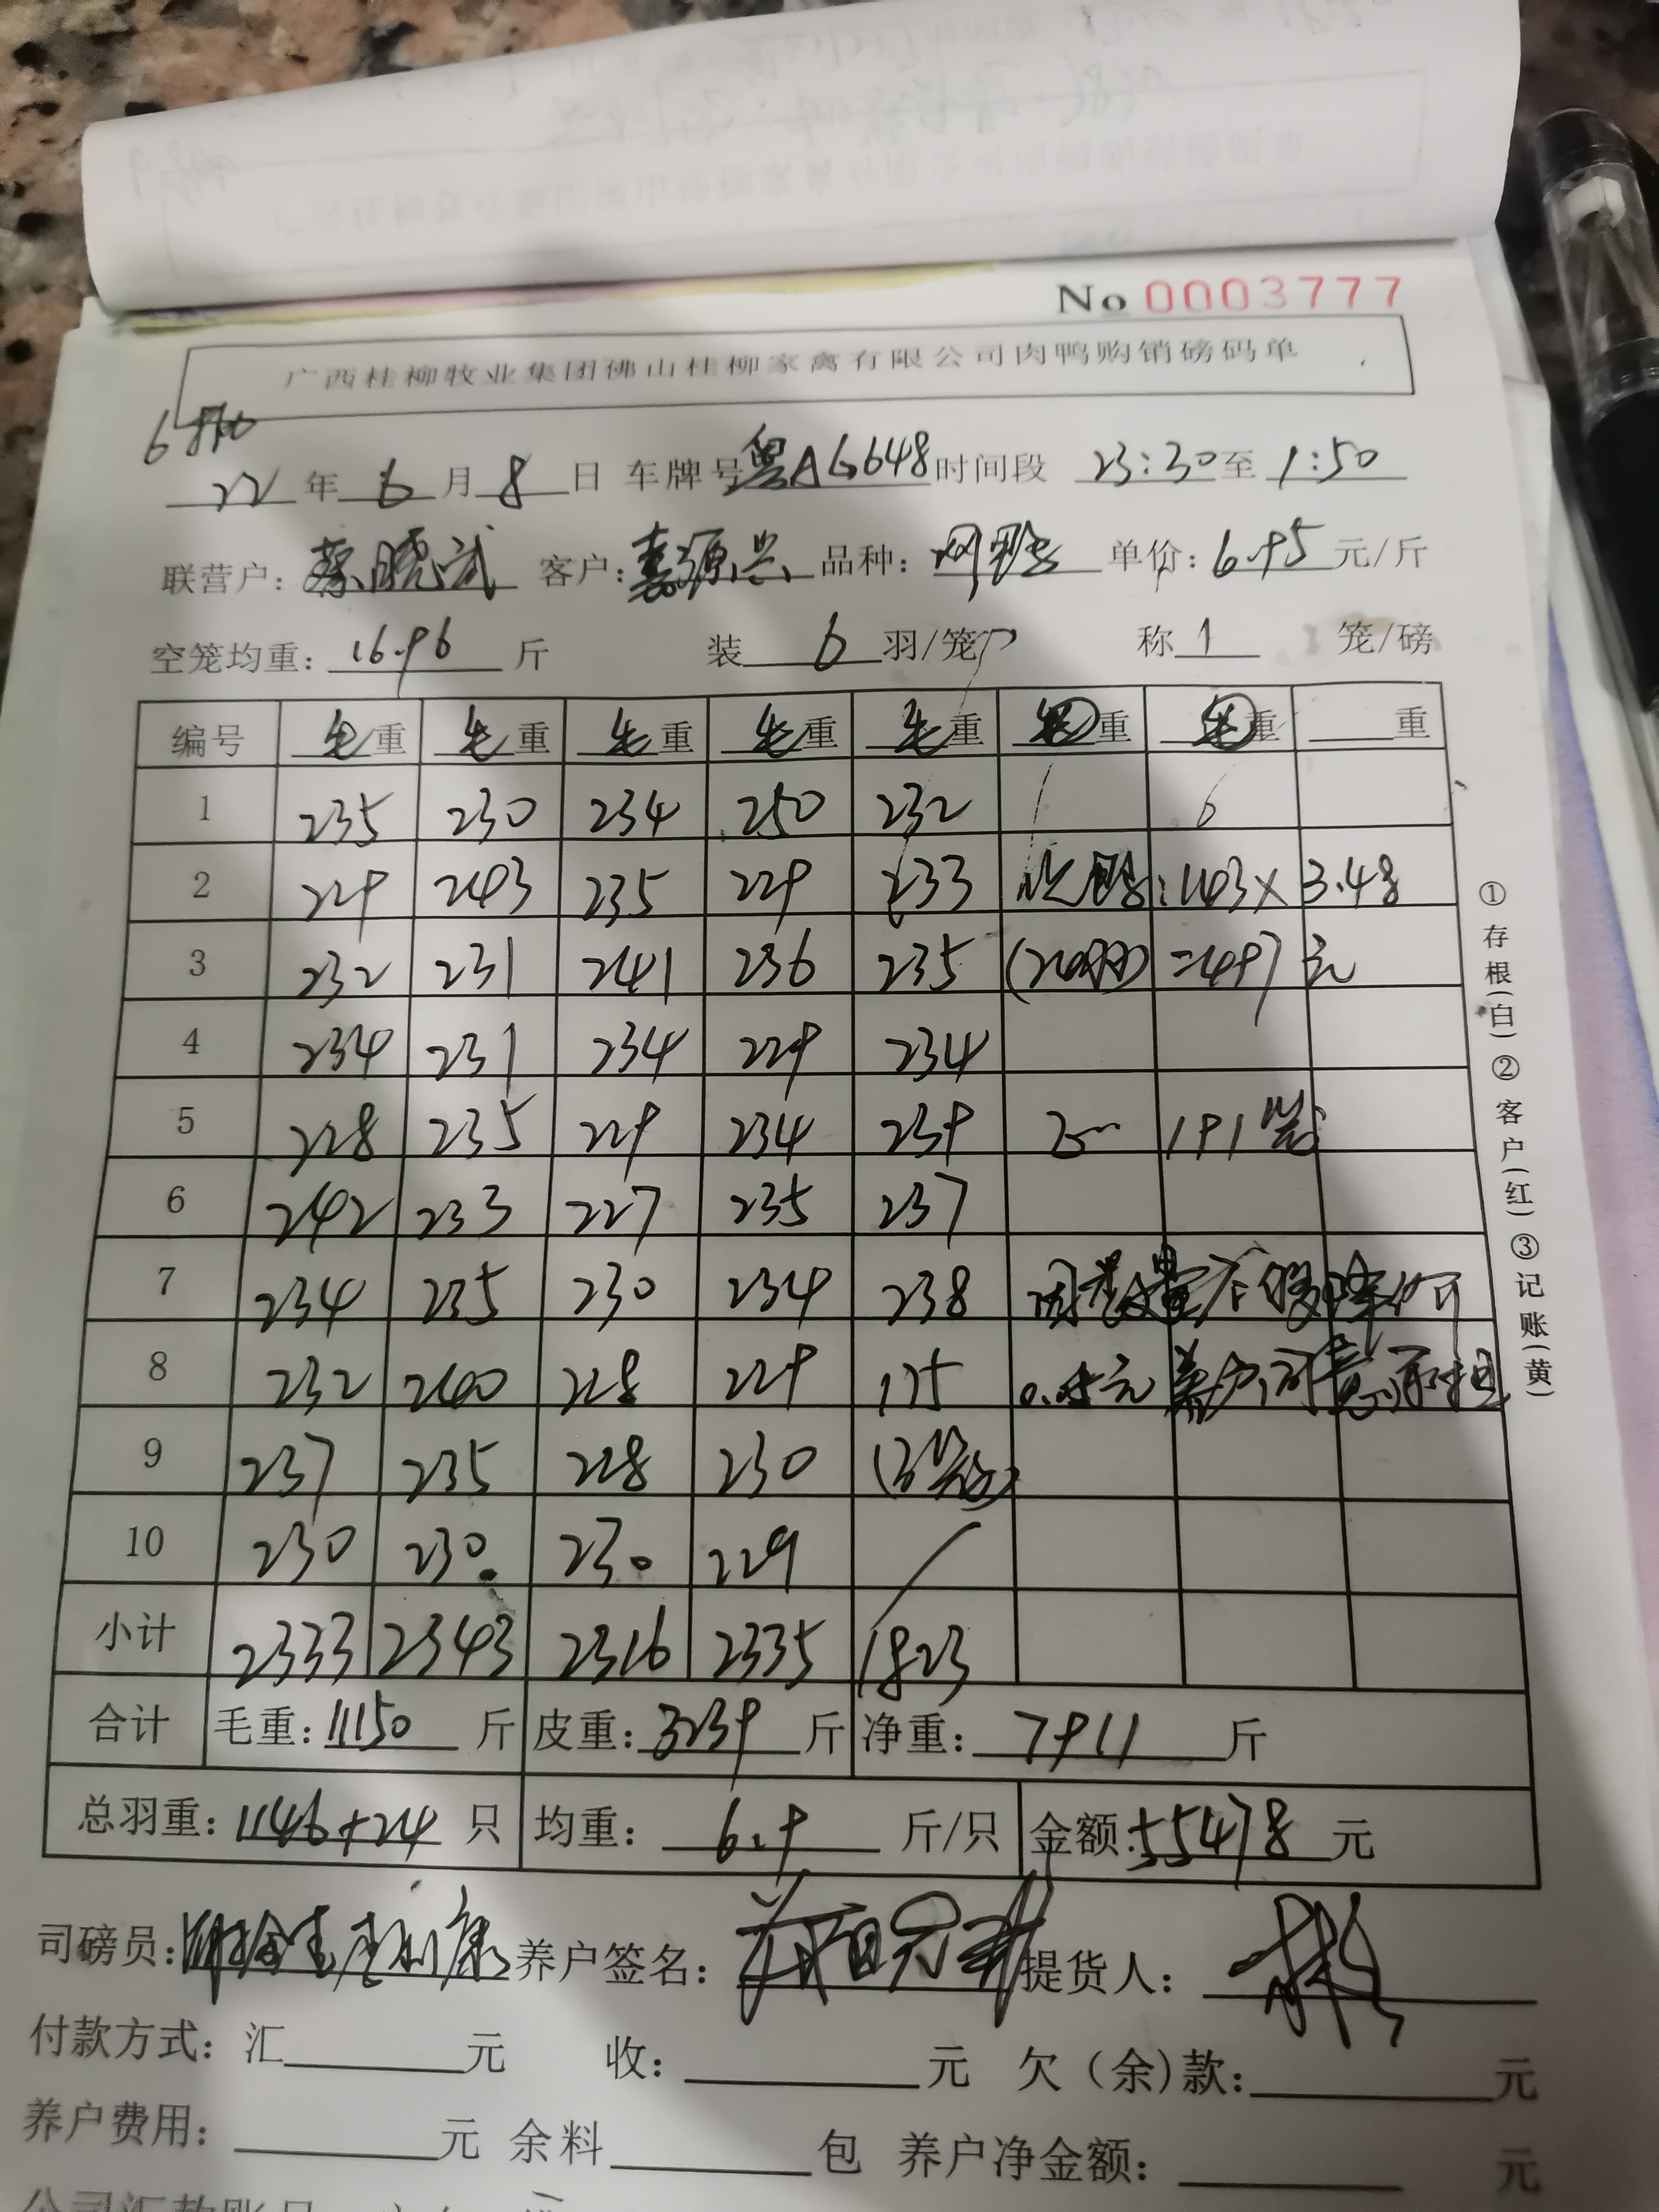 No 0003777
广西桂柳牧业集团佛山桂柳家禽有限公司肉鸭购销磅码单
22 年 6 月 8 日 车牌号 粤AG648 时间段 23:30 至 1:50
联营户: 蔡晓武 客户: 嘉源兴 品种: 单价: 6.95 元/斤
空笼均重: 16.96 斤 装 6 羽/笼 称 1 笼/磅
编号 毛重 毛重 毛重 毛重 毛重 毛重 毛重 重
1 235 230 234 250 232
2 229 243 235 229 233 次鸭:143×3.48
3 232 231 241 236 235 (24羽) =497元
4 234 231 234 229 234
5 228 235 229 234 239 191笼
6 242 233 227 235 237
7 234 235 230 234 238
8 232 240 228 229 175 0.05元 养户同意承担
9 237 235 228 230 (3笼)
10 230 230 230 229
小计 2333 2343 2316 2335 1823
合计 毛重: 11150 斤 皮重: 3239 斤 净重: 7911 斤
总羽重: 1146+24 只 均重: 6.9 斤/只 金额: 55478 元
司磅员: 养户签名: 提货人:
付款方式: 汇 元 收: 元 欠(余)款: 元
养户费用: 元 余料 包 养户净金额: 元
①存根(白)②客户(红)③记账(黄)